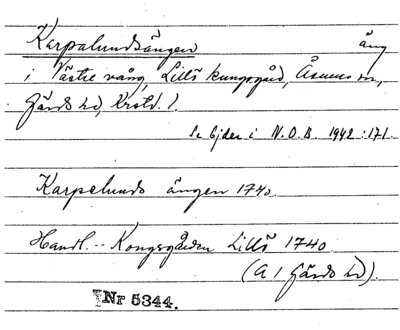 Karpalundsängen äng
i Västre vång, Lillö kungsgård, Åsums sn,
Gärds hd, Krstd. l.
Se Ejder i N.O.B. 1942:171.
Karpelunds ängen 1740
Handl. - Kongsgården Lillö 1740.
(A 1 Gärds hd).
Nr 5344.